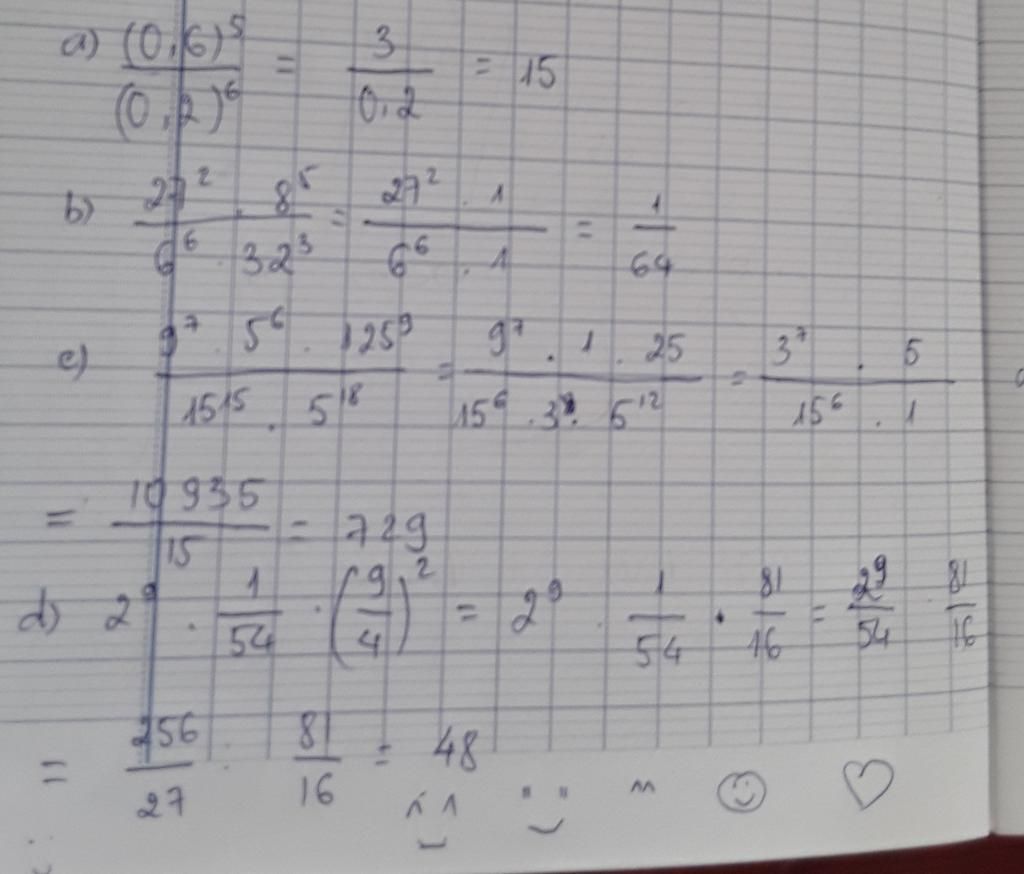 a) (0,6)⁵ / (0,2)⁶ = 3 / 0,2 = 15
b) 27² · 8⁵ / 6⁶ · 32³ = 27² · 1 / 6⁶ · 1 = 1 / 64
c) 9⁷ · 5⁶ · 125⁹ / 15¹⁵ · 5¹⁸ = 9⁷ · 1 · 25 / 15⁶ · 3⁹ · 5¹² = 3⁷ · 5 / 15⁶ · 1
= 10 935 / 15 = 729
d) 2⁹ · 1 / 54 · (9 / 4)² = 2⁹ · 1 / 54 · 81 / 16 = 2⁹ / 54 · 81 / 16
= 256 / 27 · 81 / 16 = 48